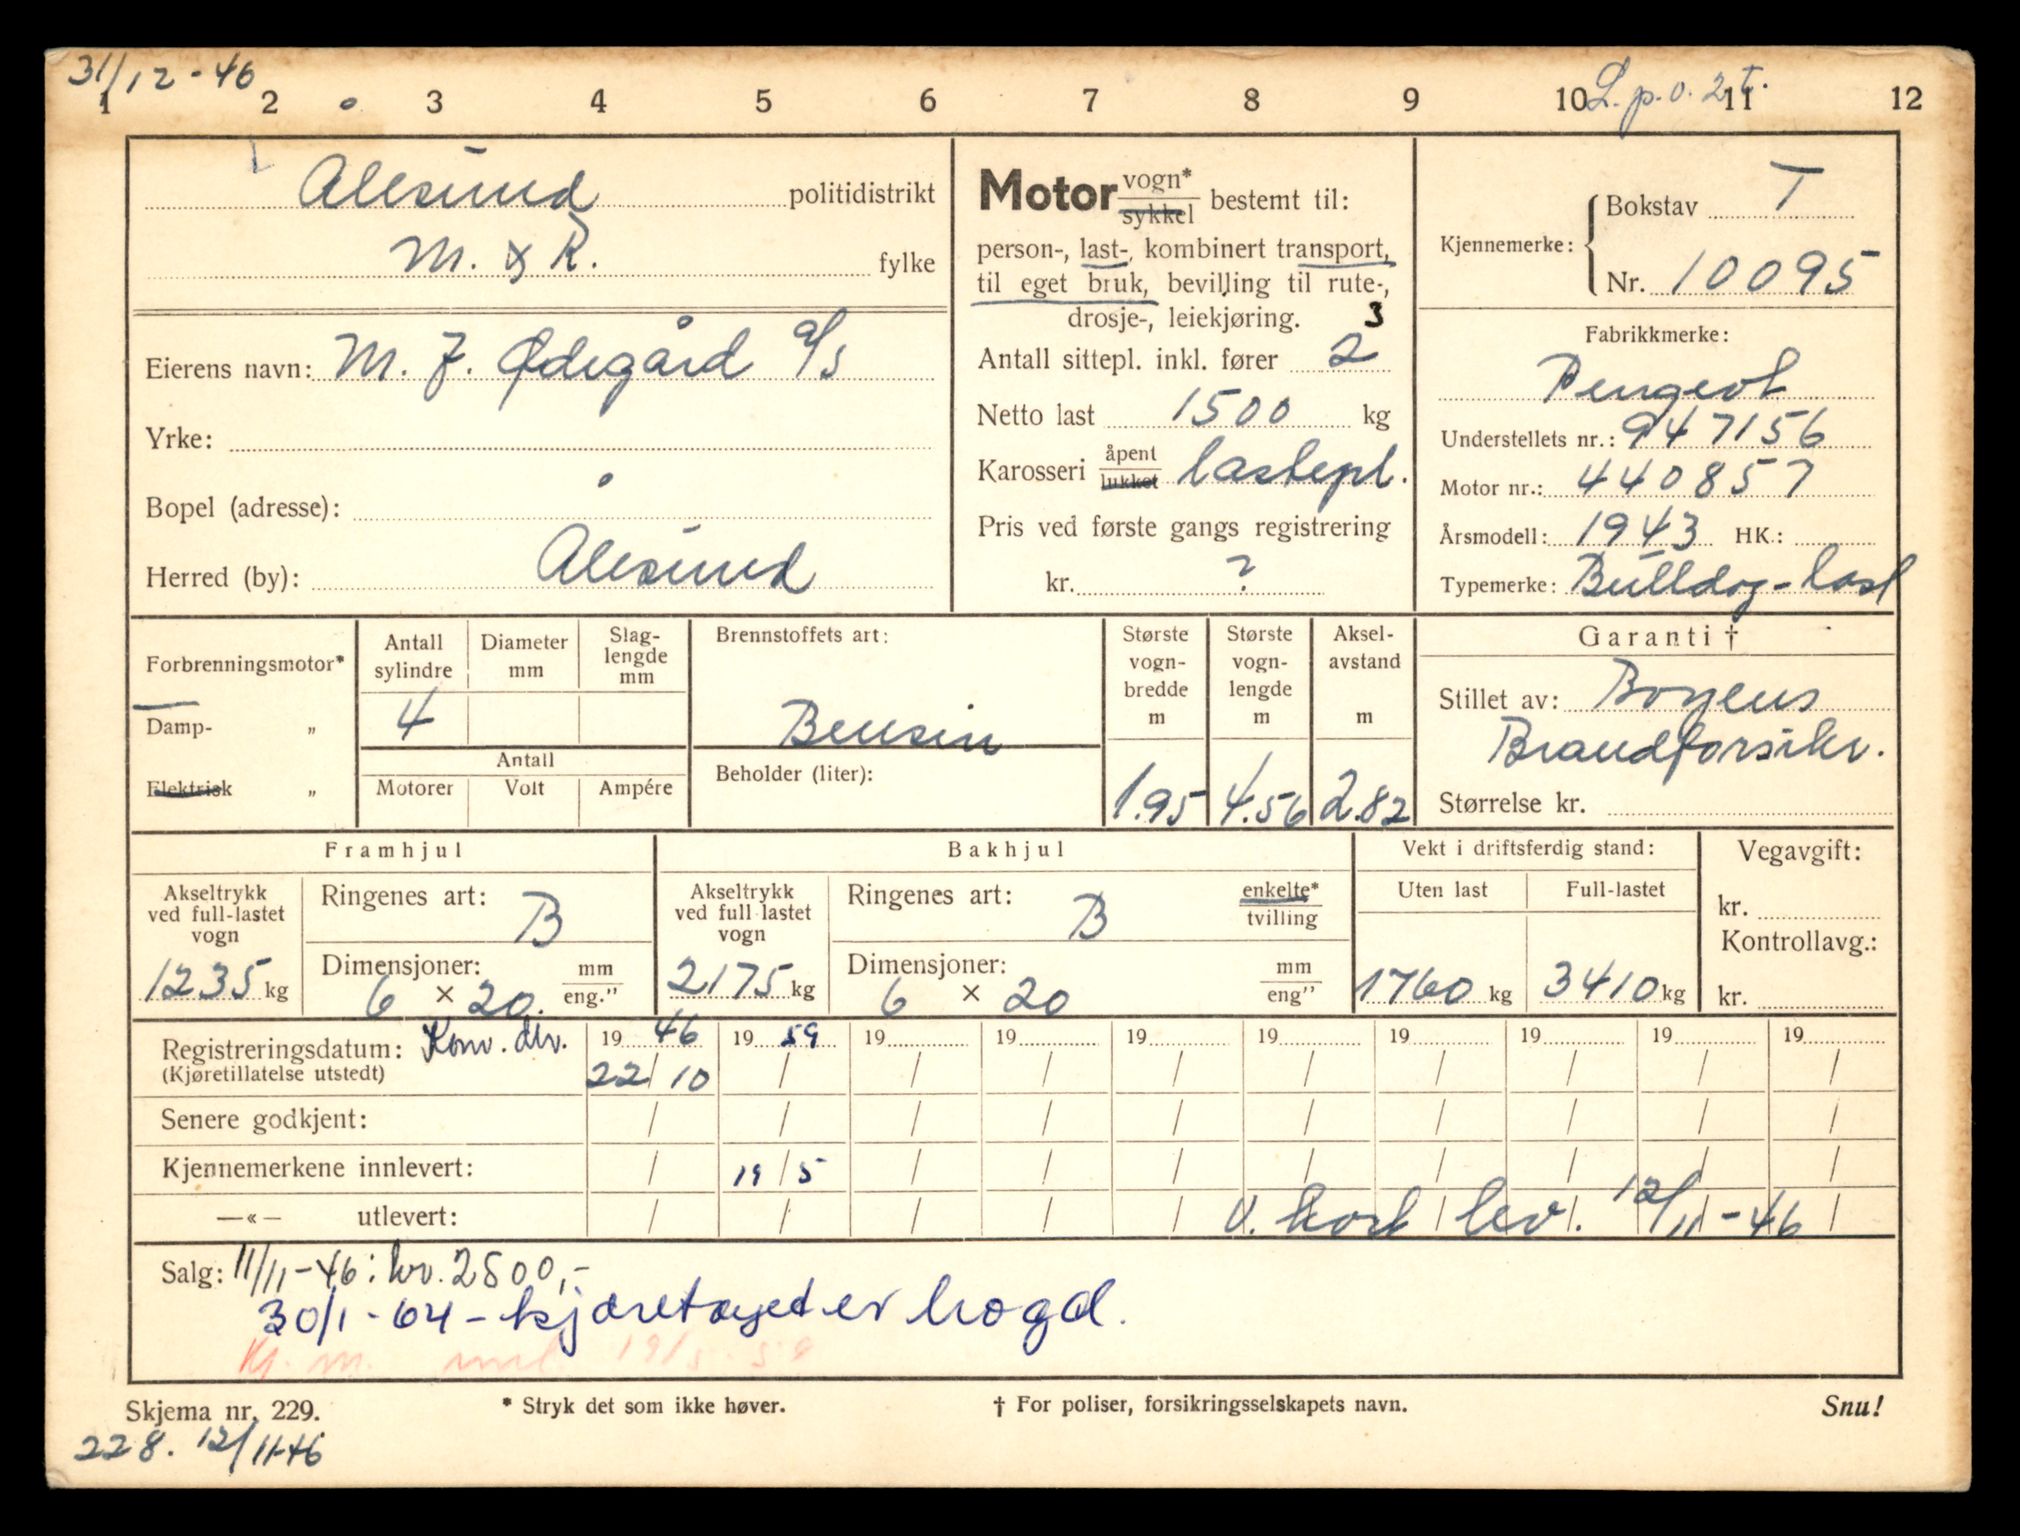 31/12-46
L.p.o. 2 t.
1 2 3 4 5 6 7 8 9 10 11 12
Ålesund politidistrikt
M. & R. fylke
Eierens navn: M. J. Ødegård a/s
Yrke:
Bopel (adresse):
Herred (by): Ålesund
Motor vogn* / sykkel bestemt til:
person-, last-, kombinert transport,
til eget bruk, bevilling til rute-,
drosje-, leiekjøring. 3
Antall sittepl. inkl. fører 2
Netto last 1500 kg
Karosseri åpent / lukket lastepl.
Pris ved første gangs registrering
kr. ?
Kjennemerke: Bokstav T
Nr. 10095
Fabrikkmerke:
Peugeot
Understellets nr.: 947156
Motor nr.: 440857
Årsmodell: 1943 HK.:
Typemerke: Bulldog-last
Forbrenningsmotor*
Damp- "
Elektrisk "
Antall sylindre Diameter mm Slag-lengde mm
4
Antall
Motorer Volt Ampére
Brennstoffets art:
Bensin
Beholder (liter):
Største vogn-bredde m 1.95
Største vogn-lengde m 4.56
Aksel-avstand m 2.82
Garanti †
Stillet av: Borgens
Brandforsikr.
Størrelse kr.
Framhjul
Akseltrykk ved full-lastet vogn
1235 kg
Ringenes art: B
Dimensjoner: mm / eng."
6 × 20.
Bakhjul
Akseltrykk ved full lastet vogn
2175 kg
Ringenes art: B enkelte* / tvilling
Dimensjoner: mm / eng"
6 × 20
Vekt i driftsferdig stand:
Uten last Full-lastet
1760 kg 3410 kg
Vegavgift:
kr.
Kontrollavg.:
kr.
Registreringsdatum: Konv. div. 19 46 19 59 19 19 19 19 19 19 19 19
(Kjøretillatelse utstedt) 22/10 / / / / / / / / /
Senere godkjent: / / / / / / / / / /
Kjennemerkene innlevert: / 19/5 / / / / / / / /
—«— utlevert: / / / / / V. kort lev. 12/11-46
Salg: 11/11-46: kr. 2500,-
30/1-64 - kjøretøyet er hogd.
Kj. m. innl. 19/5-59
Skjema nr. 229.
* Stryk det som ikke høver.
† For poliser, forsikringsselskapets navn.
Snu!
228. 12/11-46